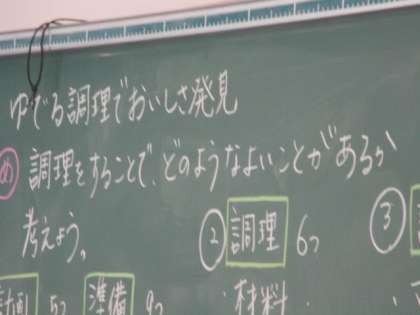 ゆでる調理でおいしさ発見
め 調理をすることで、どのようなよいことがあるか
考えよう。
② 調理 6つ
③
計画 5つ 準備 9つ
・材料